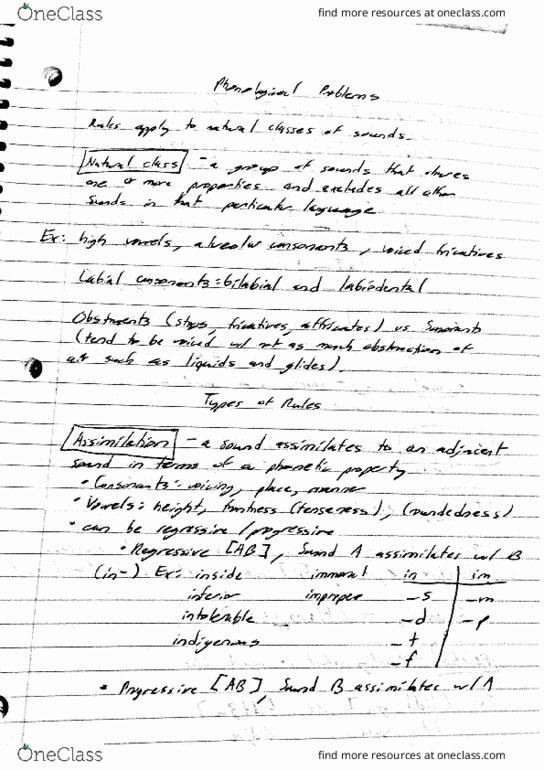 OneClass
find more resources at oneclass.com
Phonological Problems
Rules apply to natural classes of sounds.
Natural class - a group of sounds that shares
one or more properties and excludes all other
sounds in that particular language
Ex: high vowels, alveolar consonants, voiced fricatives
Labial consonants: bilabial and labiodental
Obstruents (stops, fricatives, affricates) vs Sonorants
(tend to be voiced w/ not as much obstruction of
air such as liquids and glides).
Types of Rules
Assimilation - a sound assimilates to an adjacent
sound in terms of a phonetic property
• Consonants: voicing, place, manner
• Vowels: height, (tenseness), (roundedness)
• can be regressive/progressive
• Regressive [AB], Sound A assimilates w/ B
(in-) Ex: inside immoral in im
inferior improper -s -m
intolerable -d -p
indigenous -t
-f
• Progressive [AB], Sound B assimilates w/ A
OneClass
find more resources at oneclass.com